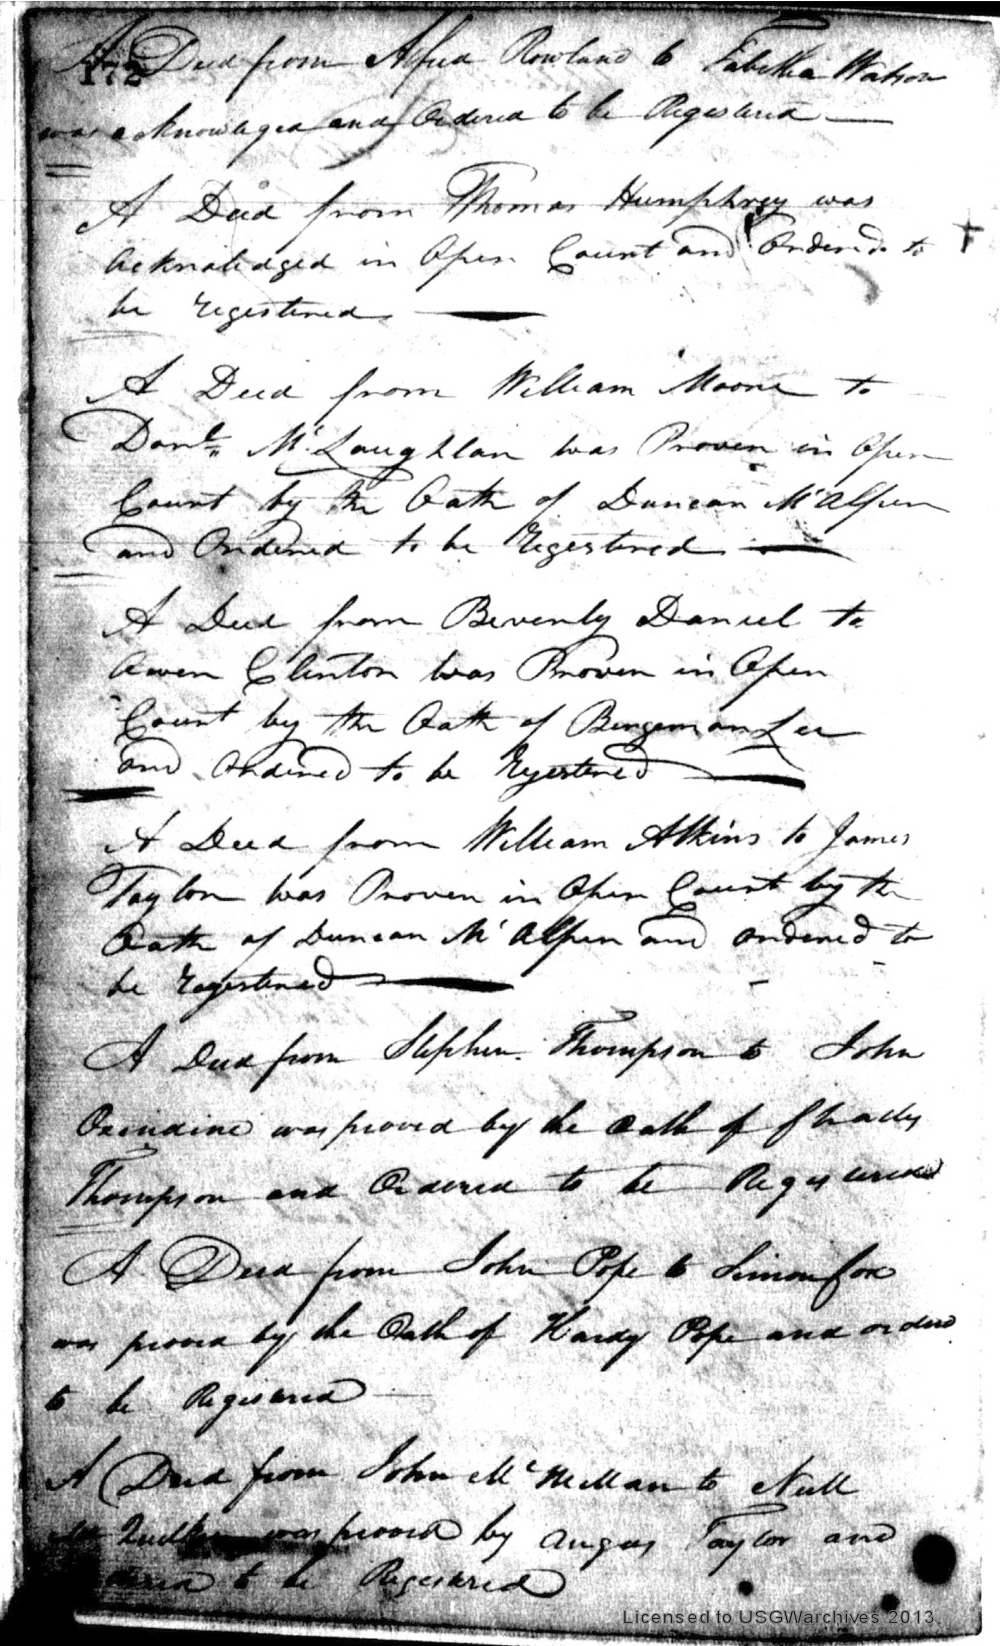 172
A Deed from Alfred Rowland to Tabitha Watson
was acknowledged and Ordered to be Registered
A Deed from Thomas Humphrey was
Acknaledged in Open Count and Ordered to
be Registered
A Deed from William Moore to
Danl. Mc Laughlan was Proven in Open
Count by the Oath of Duncan McAlpen
and Ordered to be Registered
A Deed from Beverly Daniel to
Owen Clinton was Proven in Open
Count by the Oath of Bengeman Lee
and Ordered to be Regestered
A Deed from William Atkins to James
Taylor was Proven in Open Count by the
Oath of Duncan Mc Alpen and ordered to
be Regestered
A Deed from Stephen Thompson to John
Oxendine was proved by the oath of
Thompson and Ordered to be Registered
A Deed from John Pope to Simon Cox
was proved by the Oath of Hardy Pope and ordered
to be Registered
A Deed from John Mc Millan to Neill
was proved by Angus Taylor and
to be Registered
Licensed to USGWarchives 2013.